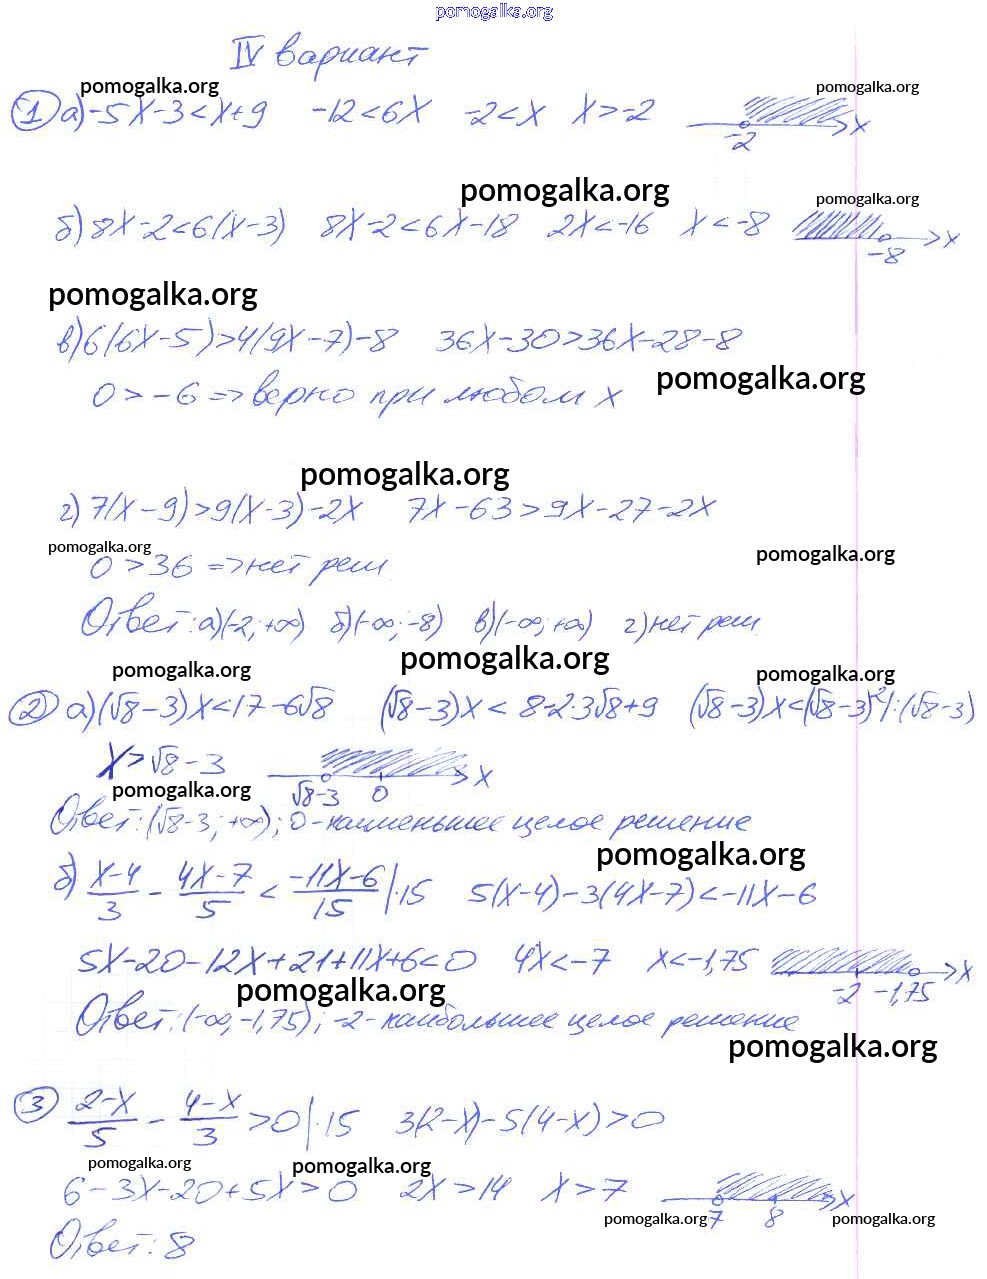 pomogalka.org
IV вариант
pomogalka.org pomogalka.org
1 а) -5x-3<x+9 -12<6x -2<x x>-2 -2 x
pomogalka.org pomogalka.org
б) 8x-2<6(x-3) 8x-2<6x-18 2x<-16 x<-8 -8 x
pomogalka.org
в) 6(6x-5)>4(9x-7)-8 36x-30>36x-28-8
pomogalka.org
0>-6 => верно при любом x
pomogalka.org
г) 7(x-9)>9(x-3)-2x 7x-63>9x-27-2x
pomogalka.org pomogalka.org
0>36 => нет реш.
Ответ: а) (-2; +∞) б) (-∞; -8) в) (-∞; +∞) г) нет реш.
pomogalka.org pomogalka.org pomogalka.org
2 а) (√8-3)x<17-6√8 (√8-3)x < 8-2·3√8+9 (√8-3)x<(√8-3)² |:(√8-3)
x>√8-3 √8-3 0 x
pomogalka.org
Ответ: (√8-3; +∞); 0-наименьшее целое решение
pomogalka.org
б) (x-4)/3 - (4x-7)/5 < (-11x-6)/15 |·15 5(x-4)-3(4x-7)<-11x-6
5x-20-12x+21+11x+6<0 4x<-7 x<-1,75 -2 -1,75 x
pomogalka.org
Ответ: (-∞; -1,75); -2-наибольшее целое решение
pomogalka.org
3 (2-x)/5 - (4-x)/3 >0 |·15 3(2-x)-5(4-x)>0
pomogalka.org pomogalka.org
6-3x-20+5x>0 2x>14 x>7 7 8 x
pomogalka.org pomogalka.org
Ответ: 8